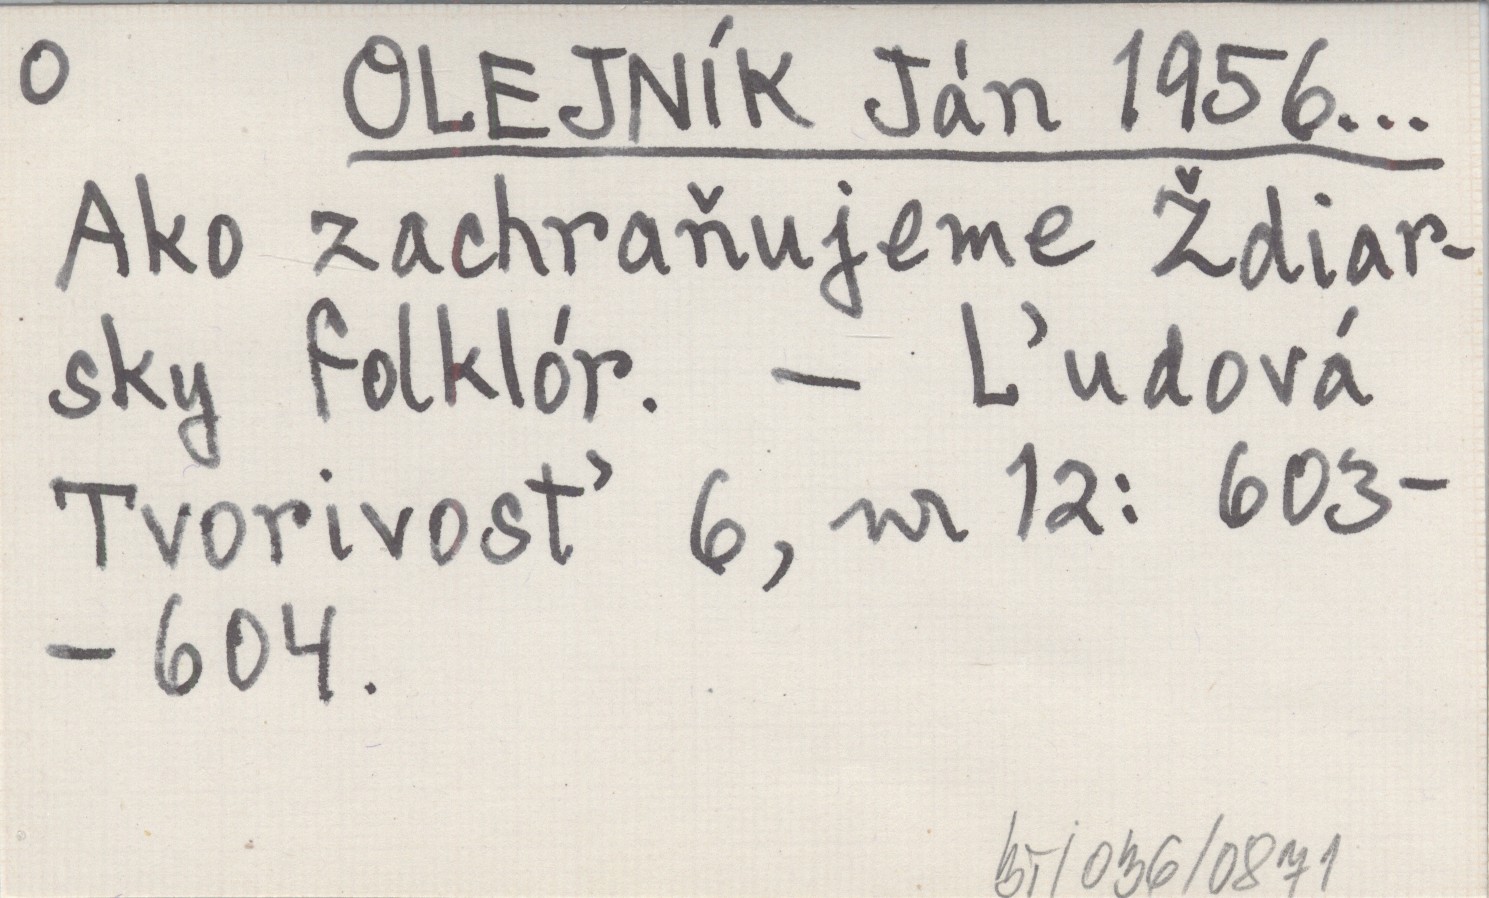 O OLEJNÍK Ján 1956...
Ako zachraňujeme Ždiar-
sky folklór. - Ľudová
Tvorivosť 6, nr 12: 603-
-604.
/036/0871